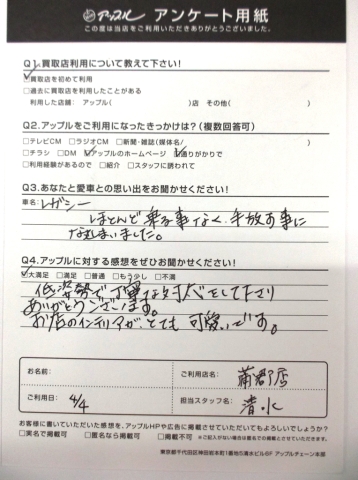 アップル アンケート用紙
この度は当店をご利用いただきありがとうございました。
Q1.買取店利用について教えて下さい!
☑買取店を初めて利用
□過去に買取店を利用したことがある
利用した店舗: アップル( )店 その他( )
Q2.アップルをご利用になったきっかけは?(複数回答可)
□テレビCM □ラジオCM □新聞・雑誌(媒体名/ )
□チラシ □DM ☑アップルのホームページ ☑通りがかりで
□利用経験があるので □紹介 □スタッフに誘われて
Q3.あなたと愛車との思い出をお聞かせください!
車名: レガシー
ほとんど乗る事なく、手放す事に
なってしまいました。
Q4.アップルに対する感想をぜひお聞かせください!
☑大満足 □満足 □普通 □もう少し □不満
低姿勢で丁寧な対応をして下さり
ありがとうございます。
お店のインテリアが、とても可愛いです。
お名前:
ご利用店名: 蒲郡店
ご利用日: 4/4
担当スタッフ名: 清水
お客様に書いていただいた感想を、アップルHPや広告に掲載させていただいてもよろしいでしょうか?
□実名で掲載可 □匿名なら掲載可 □掲載不可 ※ご記入がない場合は匿名での掲載とさせていただきます。
東京都千代田区神田岩本町1番地岩本町ビル6F アップルチェーン本部